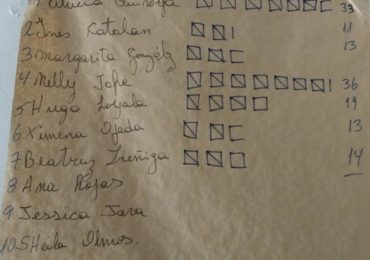 Quiroga 33
2 Ines Catalan 11
3 Margarita Gonzélz 13
4 Nelly Jofe 36
5 Hugo Loyola 19
6 Ximena Ojeda 13
7 Beatriz Zuñiga 14
8 Ana Rojas
9 Jessica Jara
10 SHeila Olmos.